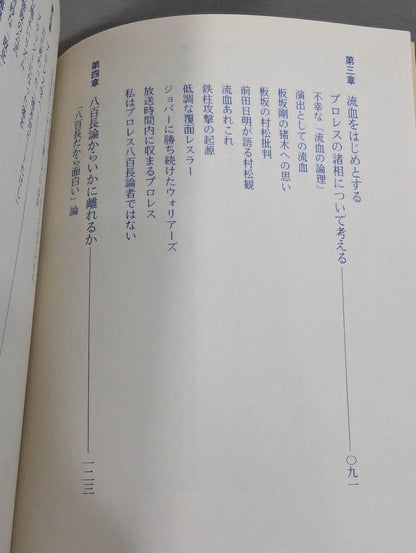 第三章 流血をはじめとする
プロレスの諸相について考える 〇九一
不幸な「流血の論理」
演出としての流血
板坂剛の猪木への思い
板坂の村松批判
前田日明が語る村松観
流血あれこれ
鉄柱攻撃の起源
低調な覆面レスラー
ジョバーに勝ち続けたウォリアーズ
放送時間内に収まるプロレス
私はプロレス八百長論者ではない
第四章 八百長論からいかに離れるか 一二三
「八百長だから面白い」論